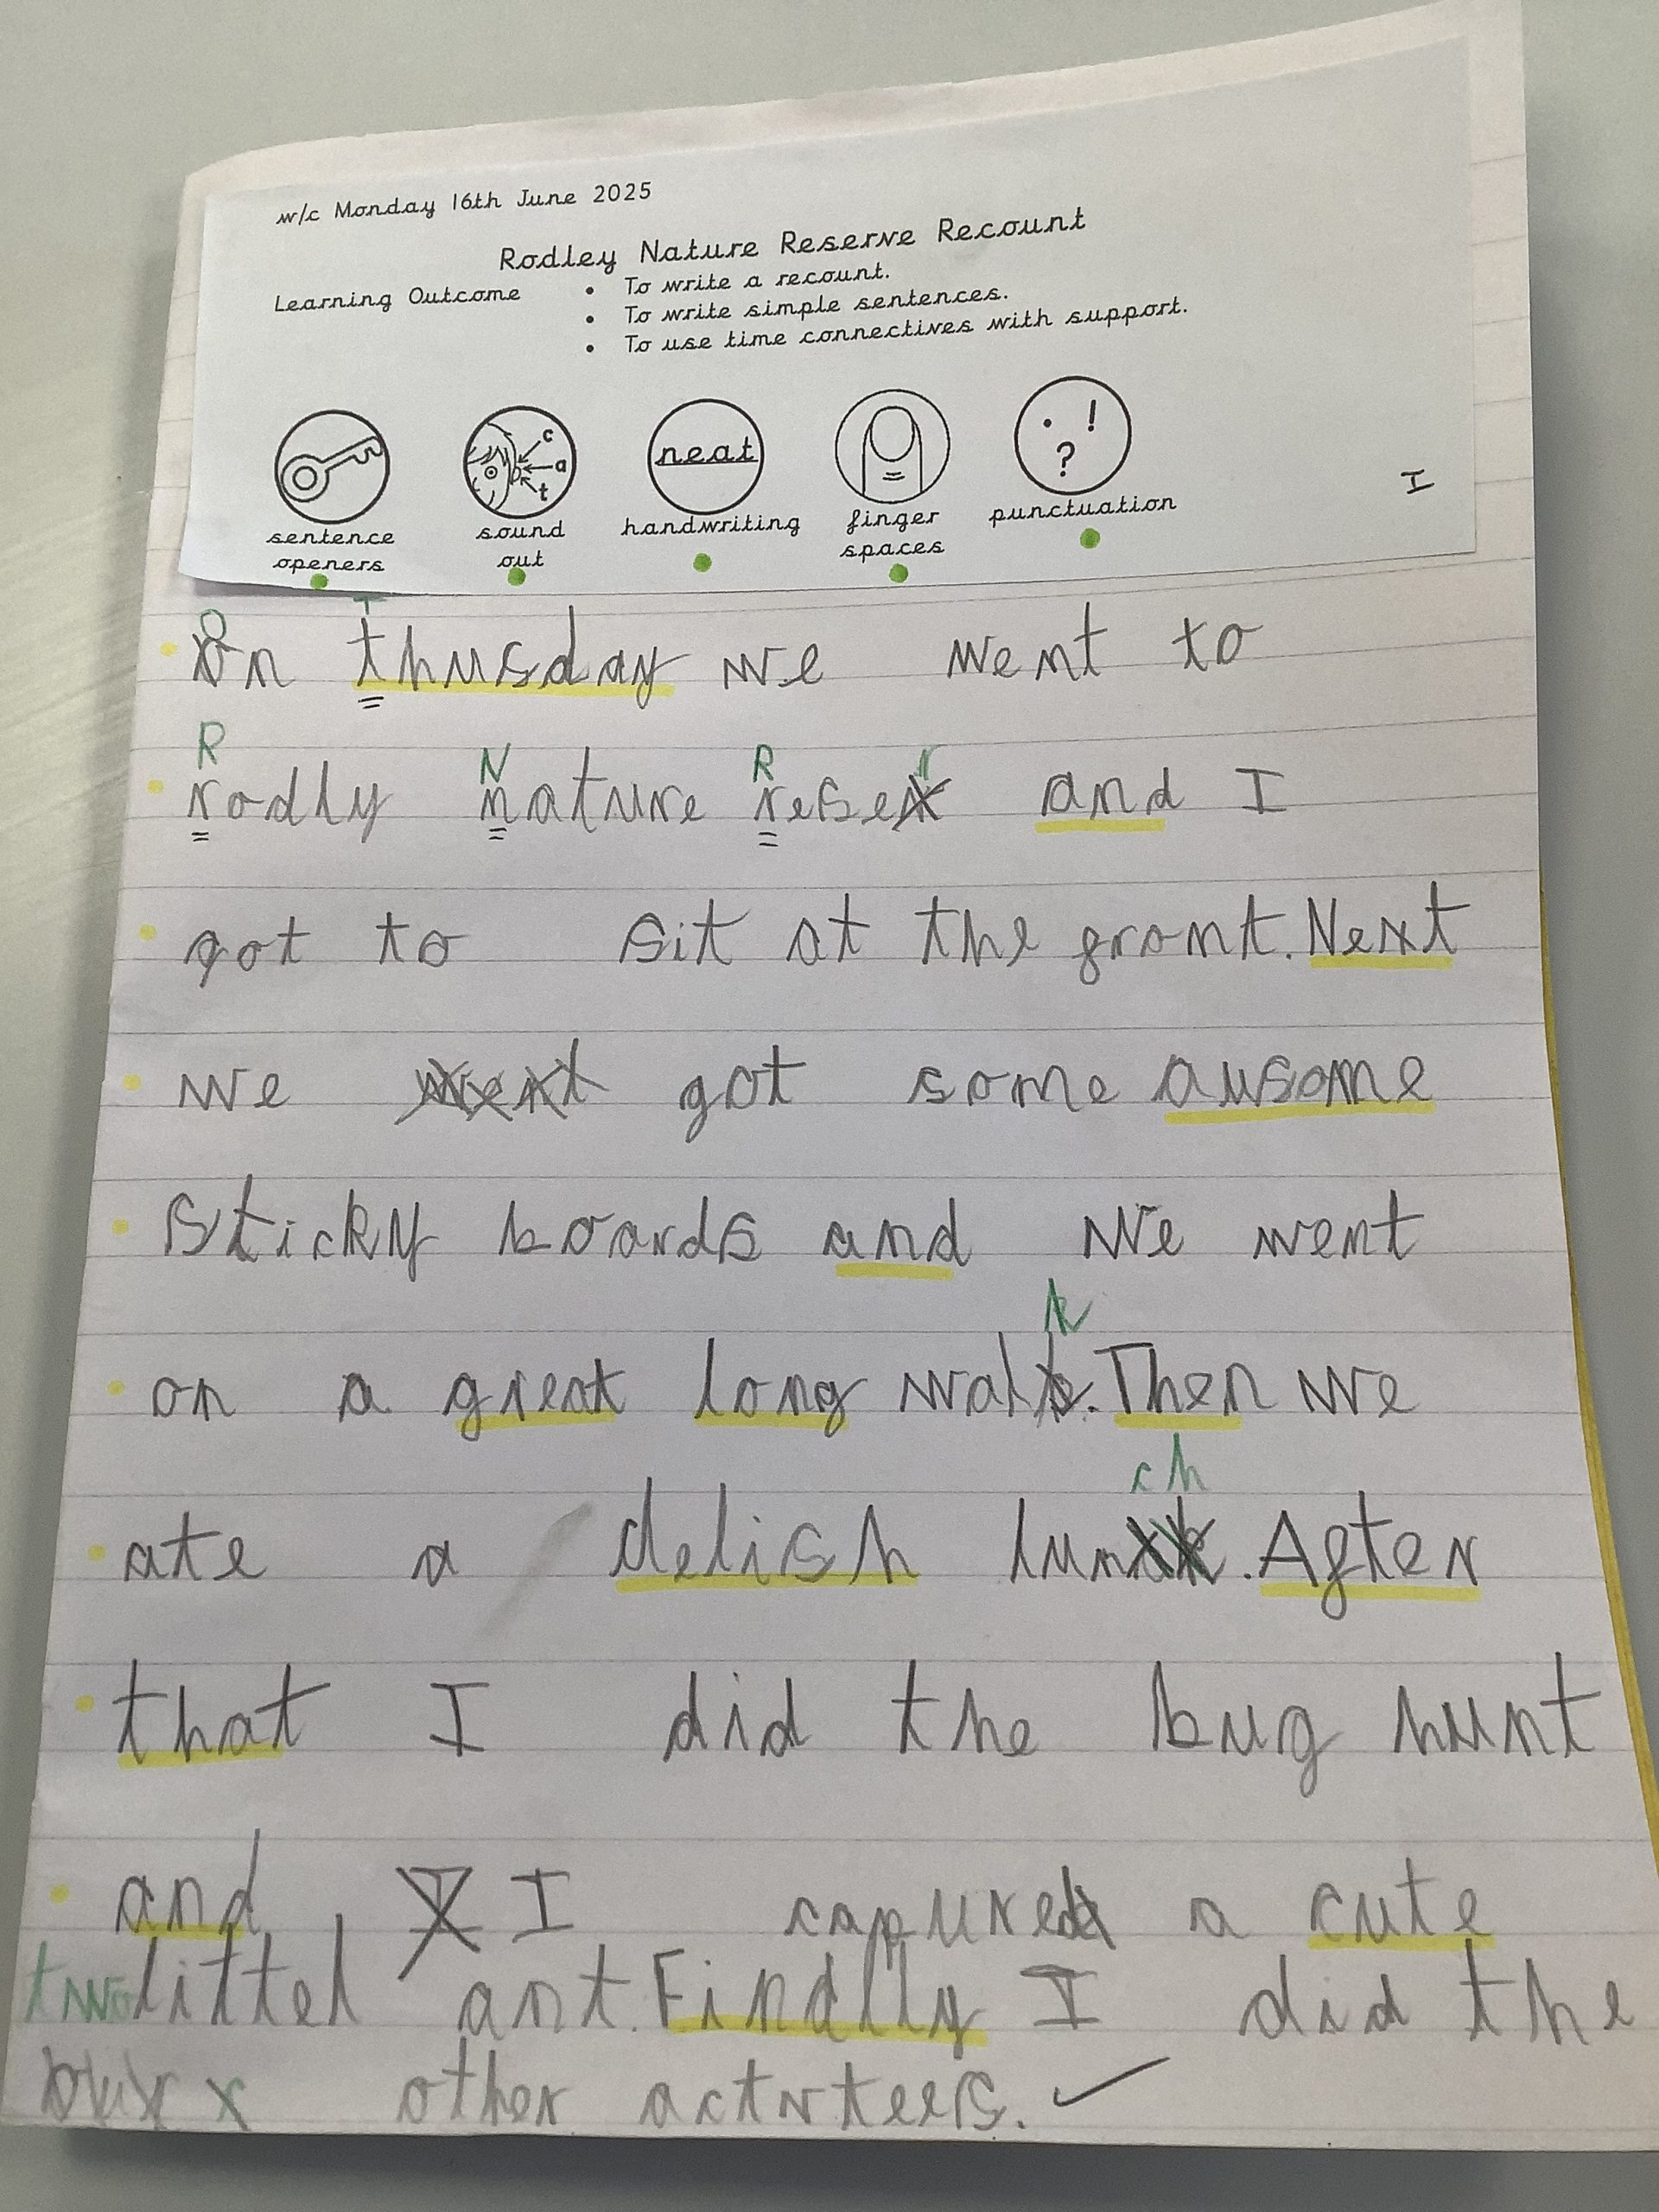 w/c Monday 16th June 2025
Rodley Nature Reserve Recount
Learning Outcome
• To write a recount.
• To write simple sentences.
• To use time connectives with support.
c
a
t
neat
. ! ?
sentence openers
sound out
handwriting
finger spaces
punctuation
I
O T
On thusday we went to
R N R r
rodly nature reser and I
got to sit at the front. Next
we went got some ausome
sticky boards and We went
on a great long walk. Then we
k
ch
ate a delish lun. After
that I did the bug hunt
and I I capured a cute
two littel ant. Findlly I did the
other actvteers.